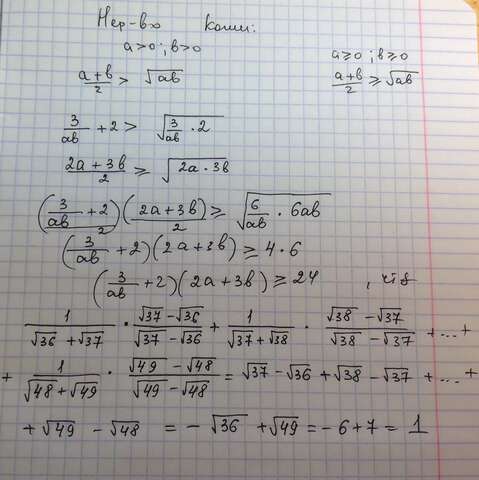 Нер-во Коши:
a>0; b>0 a≥0; b≥0
(a+b)/2 > √(ab) (a+b)/2 ≥ √(ab)
3/(ab) + 2 > √(3/(ab) · 2)
(2a+3b)/2 ≥ √(2a · 3b)
(3/(ab) + 2)/2 (2a+3b)/2 ≥ √(6/(ab) · 6ab)
(3/(ab) + 2)(2a+3b) ≥ 4·6
(3/(ab) + 2)(2a+3b) ≥ 24
1/(√36 + √37) · (√37 - √36)/(√37 - √36) + 1/(√37 + √38) · (√38 - √37)/(√38 - √37) + ... +
+ 1/(√48 + √49) · (√49 - √48)/(√49 - √48) = √37 - √36 + √38 - √37 + ... +
+ √49 - √48 = - √36 + √49 = - 6 + 7 = 1